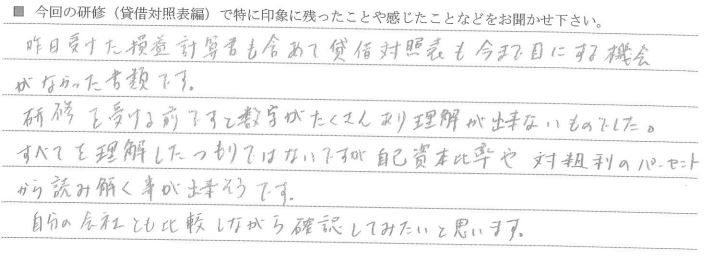 ■ 今回の研修（貸借対照表編）で特に印象に残ったことや感じたことなどをお聞かせ下さい。
昨日受けた損益計算書も含めて貸借対照表も今まで目にする機会
がなかった書類です。
研修を受ける前ですと数字がたくさんあり理解が出来ないものでした。
すべてを理解したつもりではないですが自己資本比率や対粗利のパーセント
から読み解く事が出来そうです。
自分の会社とも比較しながら確認してみたいと思います。